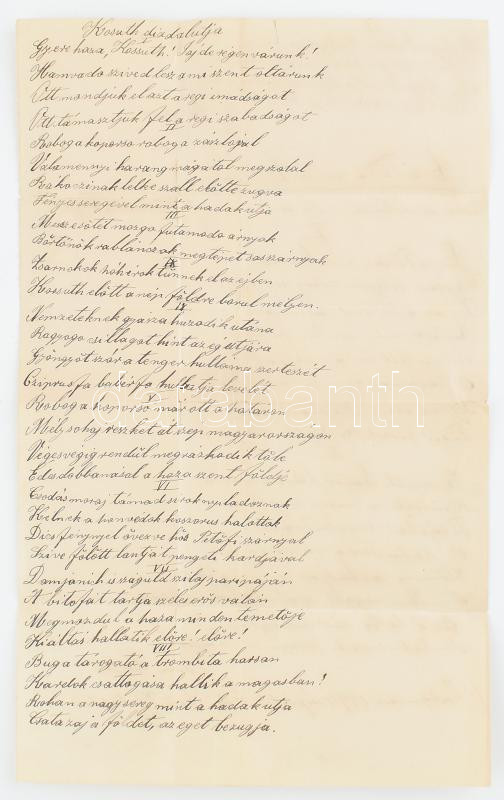 Kosuth diadalutja
Gyere haza, Kossuth! Jaj de régen várunk!
Hamvado szived lesz a mi szent oltárunk
Ott mondjuk el azt a regi imádságot
Ott támasztjuk fel a regi szabadságot
II
Robog a koporso robog a zászlojval
Valamennyi harang magátol megszolal
Rákoczinak lelke szall elötte zugva
Fenyes seregével mint a hadak utja
III
Messze sötet mozgo futamodo árnyak
Börtönök rablánczok megtepet sasszárnyak
IV
Zsarnokok hóhérok tünnek el az ejben
Kossuth elött a nép földre borul melyen.
IV
Nemzeteknek gyásza huzodik utána
Ragyogo csillagot hint az eg utjára
Gyöngyöt szór a tenger hulláma szerteszét
Cziprusfa babérfa hullatja levelét
V
Robog a koporso már ott a határon
Mély sohaj reszket át szep magyarországon
Véges végig rendül megrázkodik töle
Edadobbanásal a haza szent földje
VI
Csodás moraj támad siroknyiladoznak
Kelnek a honvedok koszorus halottak
Dics fénynyel övezve hös Petöfi szárnyal
Szive fölött lantját pengeti kardjával
VII
Damjanich is száguld szilaj paripáján
A bitofát tartja széles erös vállán
Megmozdul a haza minden temetöje
Kiáltás hallatik elöre! elöre!
VIII
Buga tárogató a trombita harsan
Kardok csattogása hallik a magasban!
Rohan a nagy sereg mint a hadak utja
Csatazaj a földet, az eget bezugja.
darabanth